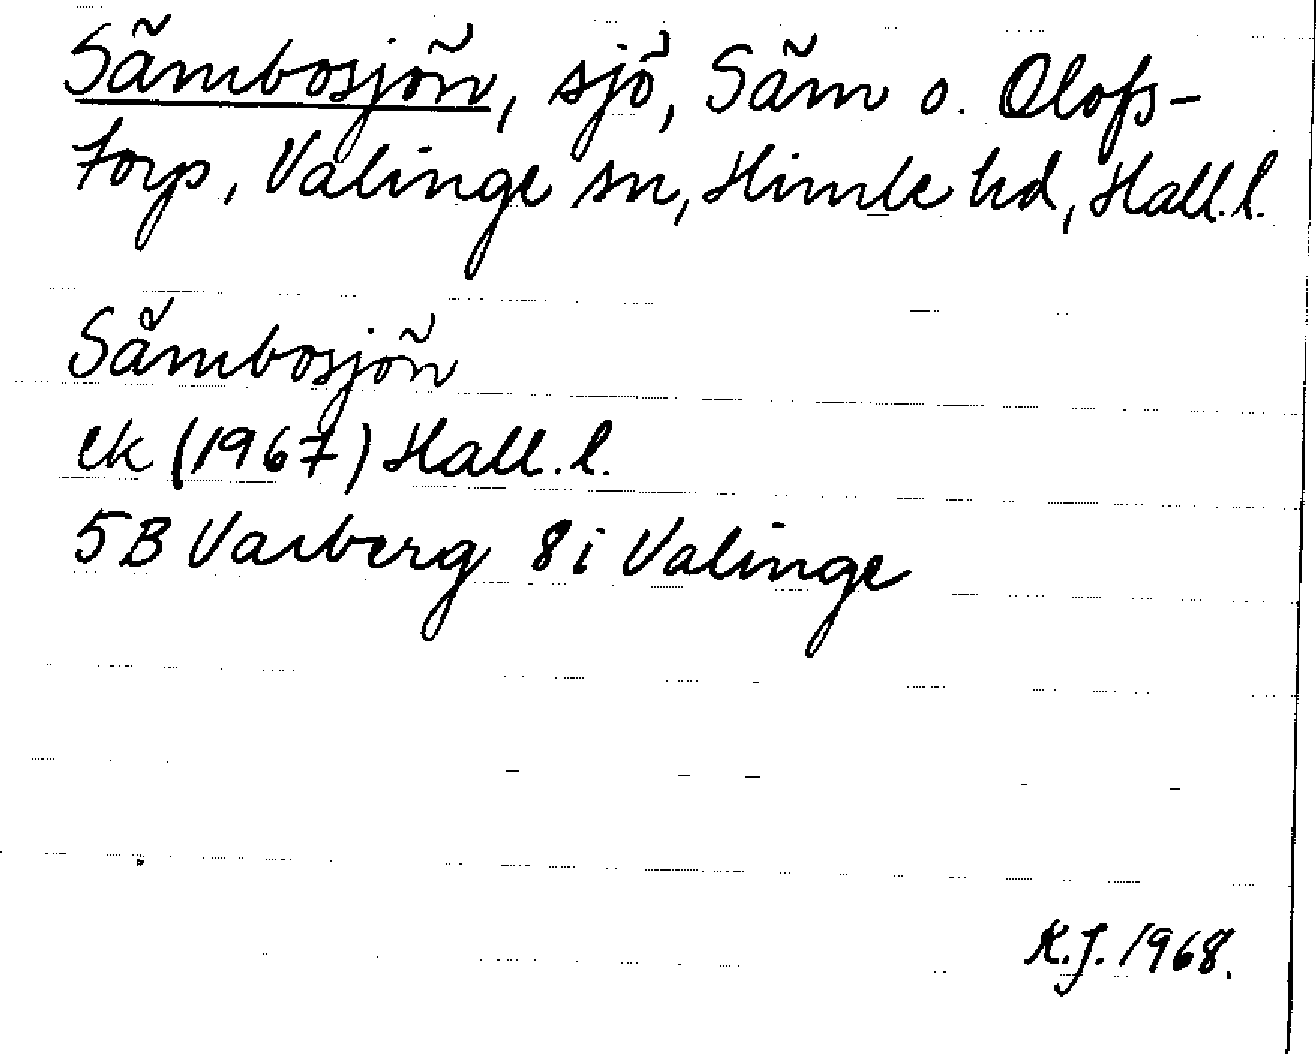 Sämbosjön, sjö, Säm o. Olofs-
torp, Valinge sn, Himle hd, Hall.l.
Såmbosjön
ek (1967) Hall.l.
5B Varberg 8i Valinge
K.J. 1968.